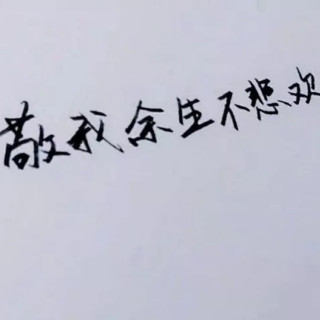 敬我余生不悲欢